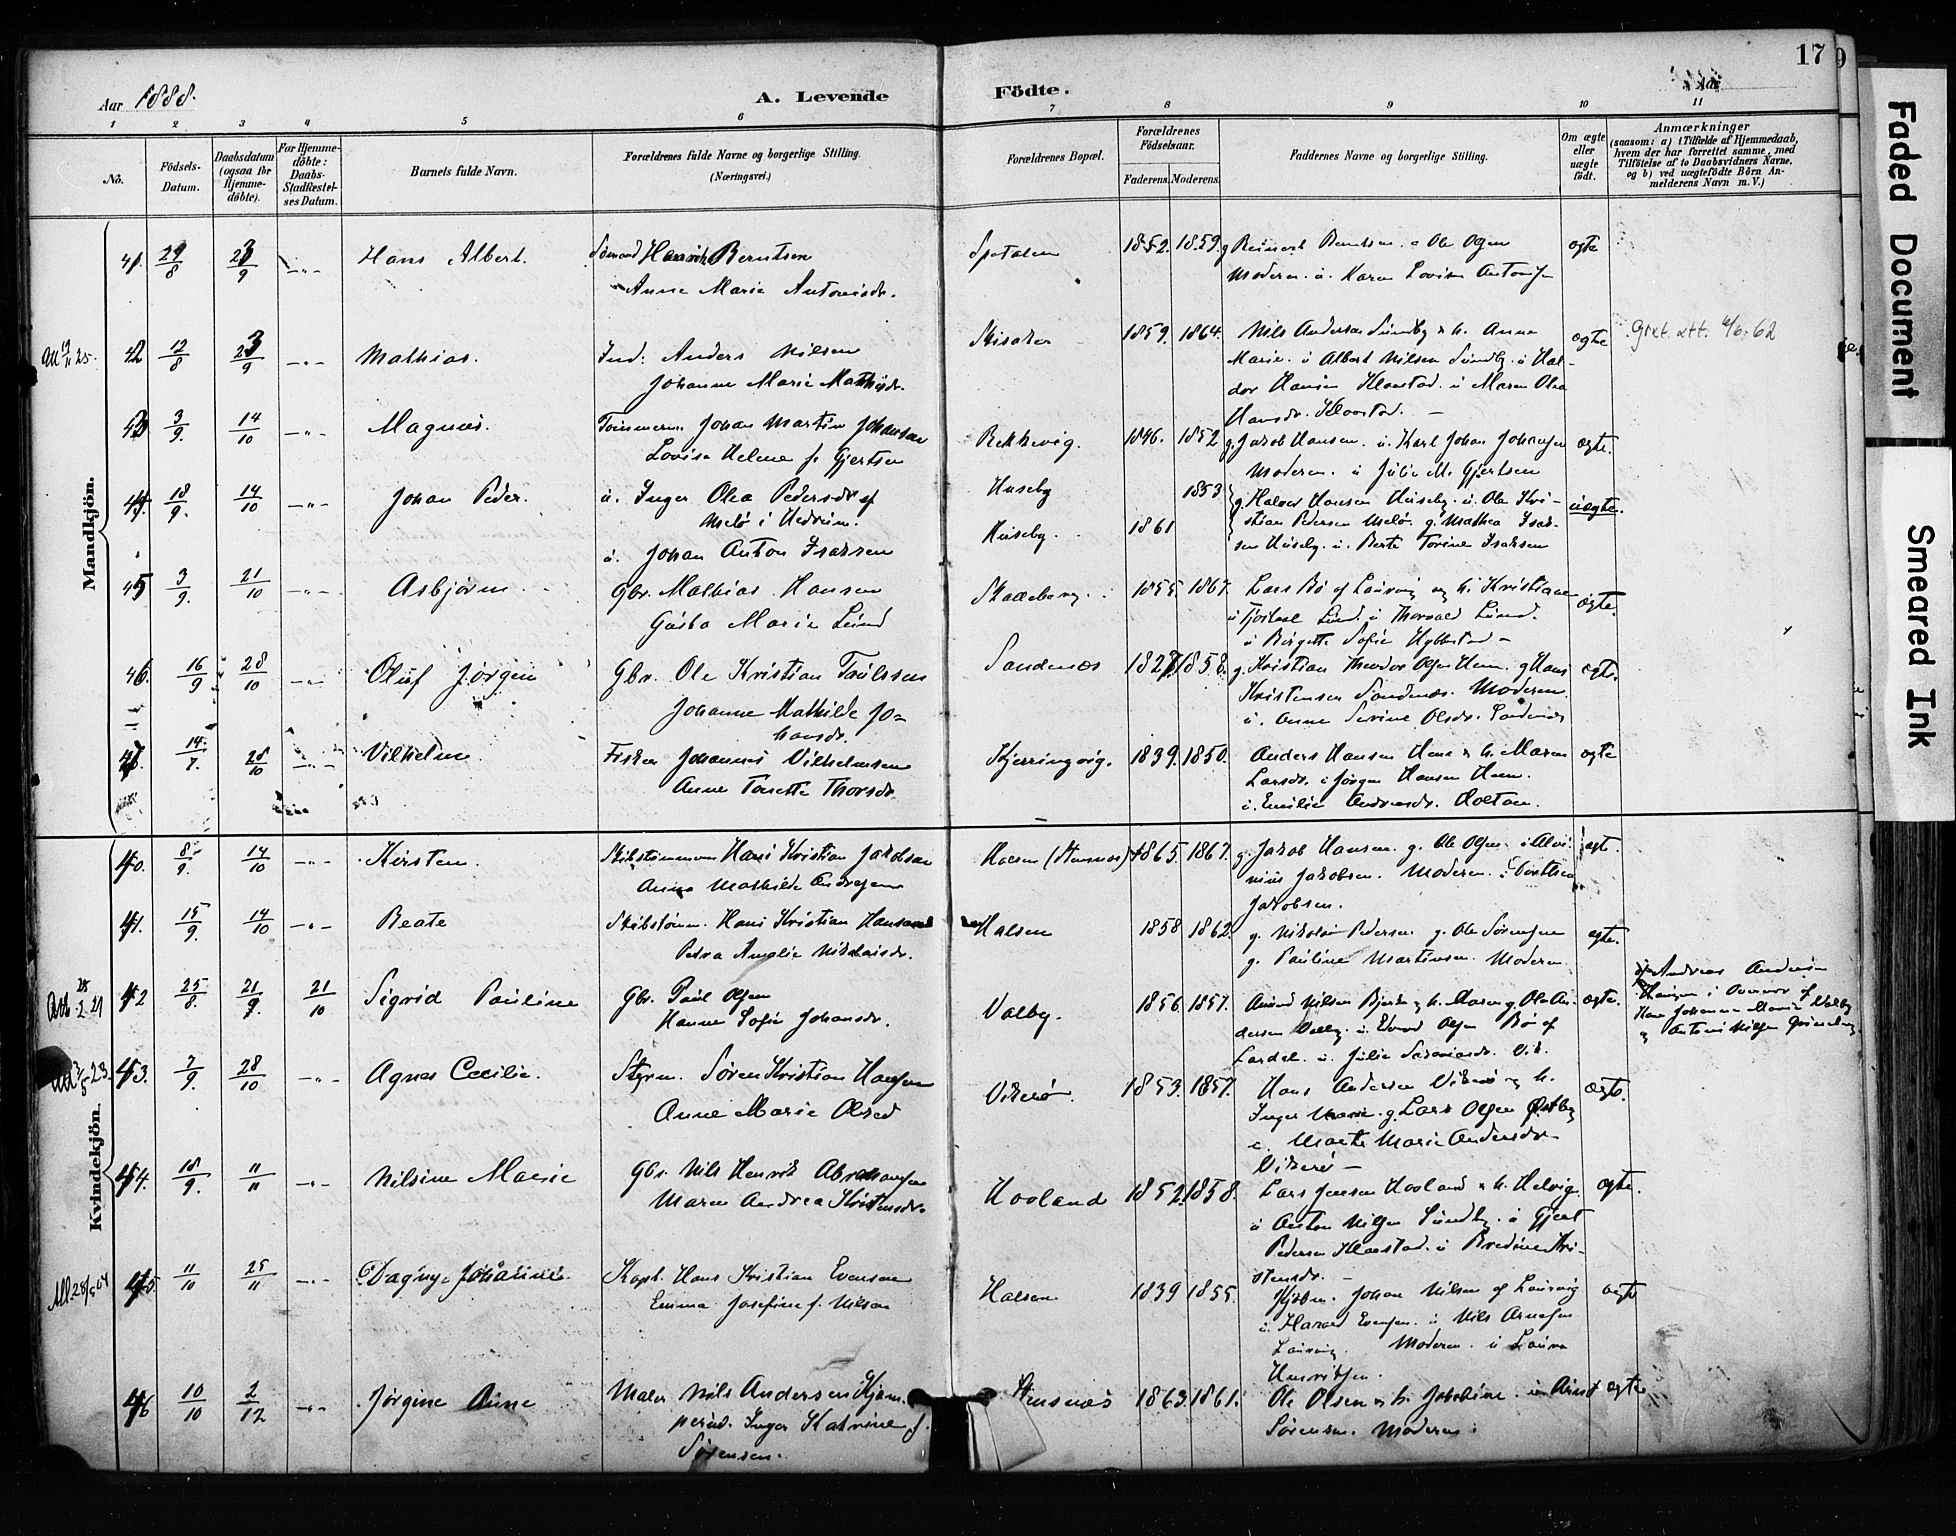 17
Aar 1888.
A. Levende
Födte.
Aar
1
2
3
4
5
6
7
8
9
10
11
No.
Födsels-
Datum.
Daabsdatum
(ogsaa for
Hjemme-
döbte).
For Hjemme-
döbte:
Daabs-
Stadfæstel-
ses Datum.
Barnets fulde Navn.
Forældrenes fulde Navne og borgerlige Stilling.
(Næringsvei.)
Forældrenes Bopæl.
Forældrenes
Födselsaar.
Faderens.
Moderens.
Faddernes Navne og borgerlige Stilling.
Om ægte
eller
uægte
födt.
Anmærkninger
(saasom: a) i Tilfælde af Hjemmedaab,
hvem der har forrettet samme, med
Tilföielse af to Daabsvidners Navne.
og b) ved uægtefödte Börn An-
melderens Navn m. V.)
Mandkjön.
41. 29/8 23/9 -„- Hans Albert. Henrik Berntsen
Anne Marie Antonisdr.
1852. 1859. g Reinert Berntsen. Ole Olsen
Moderen. u. Karen Lovise
ægte
42 12/8 23/9 -„- Mathias. Ind: Anders Nilsen
Johanne Marie Mathisdr.
1859. 1864. Nils Andersen Sundby & h. Anne
Marie. u Albert Nilsen Sundby. u Hal-
dor Hansen Klaastad. u Maren Olea
Hansdr. Klaastad. -
ægte
Grxt. att. 6/6-62
43 3/9. 14/10 -„- Magnus. Tømmerm. Johan Martin Johansen
Lovise Helene f. Gjertsen
Rekkevig. 1846. 1852 g. Jakob Hansen. u. Karl Johan Johansen
Moderen. u Julie M. Gjertsen
ægte.
44. 18/9. 14/10 -„- Johan Peder. u. Inger Olea Pedersdr af
Melø i Hedrum.
u. Johan Anton Isaksen
Huseby
Huseby. 1861 1853
g. Halvor Hansen Huseby. u. Ole Kri-
stian Pedersen Melø. g. Mathea Isak-
sen Huseby. u. Berte Torine Isaksen
uægte.
45 3/9. 21/10 -„- Asbjørn. Gbr. Mathias Hansen
Gusta Marie Lund
Skaaeberg. 1855 1867. Lars Bø af Laurvig og h. Kristiane
u Lund. u Thorvald Lund.
u Birgitte Sofie
ægte.
46. 16/9 28/10 -„- Oluf Jørgen Gbr. Ole Kristian Trulssen
Johanne Mathilde Jo-
hansdr.
Sandenæs 1827 1858. g. Kristian Theodor Olsen Hem. g Hans
Kristensen Sandenæs. Moderen
u. Anne Severine Olsdr. Sandenæs
ægte.
47. 14/7. 28/10 -„- Vilhelm. Fisker Johannes Vilhelmsen
Anne Tonette Thorsdr
Kjerringvig. 1839. 1850. Anders Hansen Hem & h. Maren
Larsdr. u Jørgen Hansen Hem.
u. Emilie Andreasdr. Holtan.
ægte
Kvindekjön.
40. 8/9. 14/10 -„- Kirsten. Skibstømmerm. Hans Kristian Jakobsen
Anne Mathilde Andersen
Halsen (Stensnæs) 1865. 1867. g. Jakob Hansen. g. Ole Olsen. u Alvi-
nius Jakobsen. Moderen.
Jakobsen.
ægt.
41. 15/9. 14/10 -„- Beate Skibstømm. Hans Kristian Hansen
Petra Amalie Nikolaisdr.
Halsen 1858 1862. g. Nikolai Pedersen. g. Ole Sørensen
g. Pauline Martinsen. Moderen
ægte.
42 25/8. 21/9. 21/10 Sigrid Pauline Gbr. Paul Olsen
Hanne Sofie Johansdr.
Valby. 1856. 1857. Amund Nilsen Bjerke & h. Maren g Ole An-
dersen Valby. u. Edvard Olsen Bø af
Lardal. u. Julie Vik.
ægte.
Andreas
af
Johanne Marie Valby
& Anton Nilsen
43. 7/9. 28/10 -„- Agnes Cecilie. Styrm. Søren Kristian Hansen
Anne Marie Olsed
Vikerø. 1853. 1857. Hans Andersen Vikerø og h.
Inger Marie. g. Lars Olsen Østby
Maete Marie Andersdr
Vikerø -
ægte.
44. 18/9. 11/11 -„- Nilsine Marie Gbr Nils Henrik Abrahamsen
Maren Andrea Kristensdr.
Hovland 1852. 1858. Lars Jensen Hovland & h. Helvig.
u Anton Nilsen Sundby. u Gjert
Pedersen Klaastad. u Bredine Kri-
stensdr. -
ægte.
45. 11/10 25/11 -„- Dagny Johanne. Kapt. Hans Kristian Evensen
Emma Josefine f. Nilsen
Halsen 1839 1855. Kjøbm. Johan Nilsen af Laurvig
u. Harald Evensen. u Nils Arnesen
Laurvig. Moderen. u Laura
Henriksen.
ægte
46 10/10 2/12 -„- Jørgine Anne Maler Nils Andersen
Inger Katrine f.
Sørensen.
Stensnæs 1863. 1861. Ole Olsen & h. Josefine. u Arnt
Sørensen. Moderen.
ægte
Faded Document
Smeared Ink